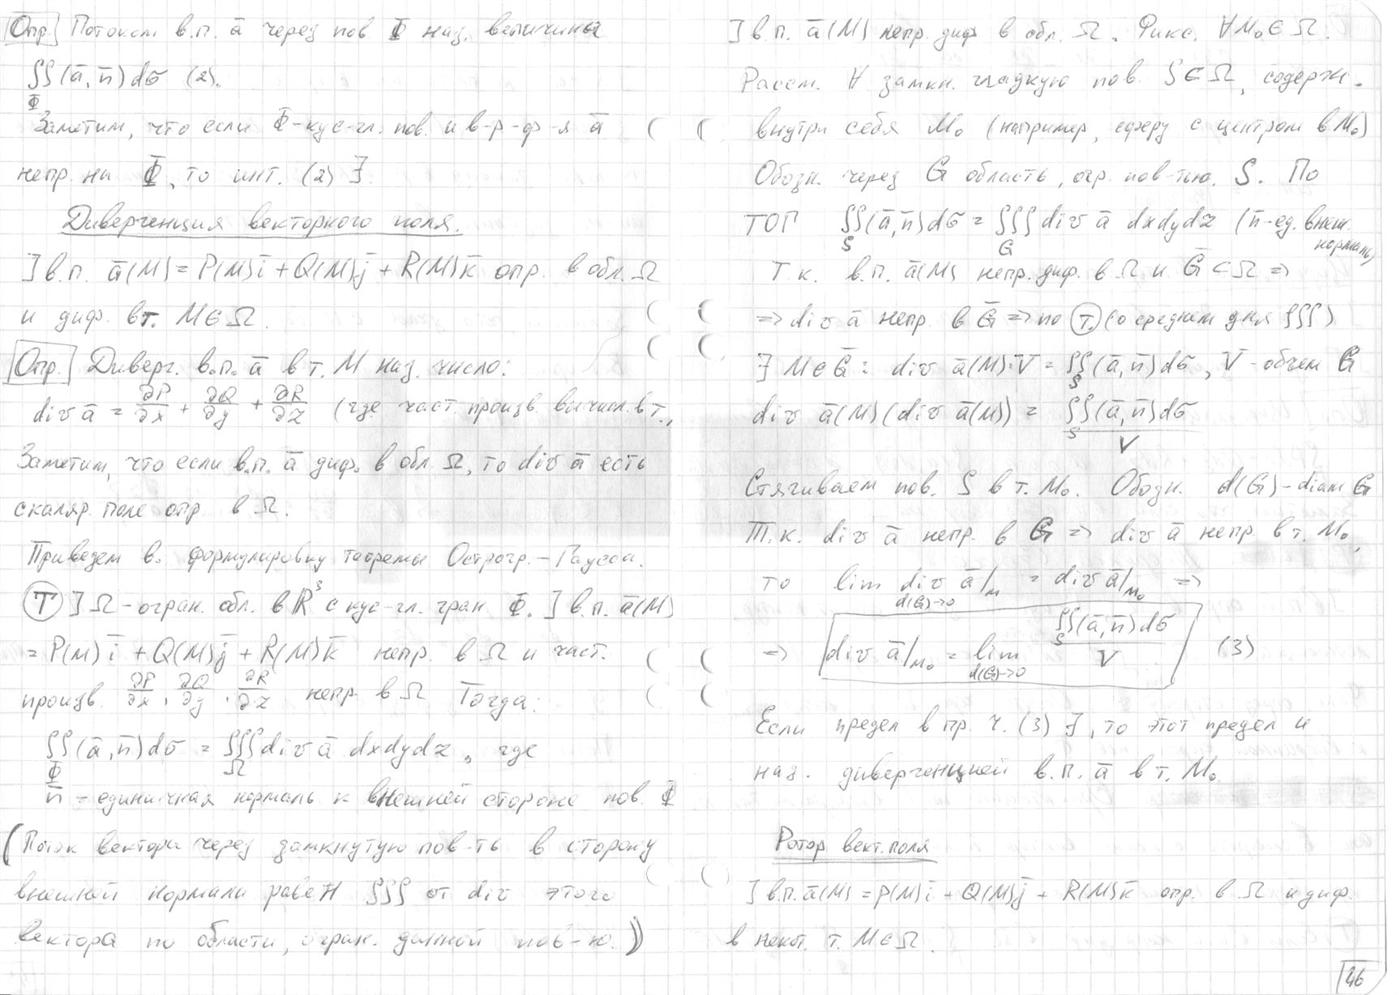 Опр. Потоком в.п. ā через пов Φ наз. величина
∬(ā, n̄)dσ (2).
Φ
Заметим, что если Φ-кус-гл. пов. и в-р-ф-я ā
непр. на Φ, то инт. (2) ∃.
Дивергенция векторного поля.
] в.п. ā(M) = P(M)ī + Q(M)j̄ + R(M)k̄ опр. в обл. Ω
и диф. в т. M∈Ω.
Опр. Диверг. в.п. ā в т. M наз. число:
div ā = ∂P/∂x + ∂Q/∂y + ∂R/∂z (где част. произв. вычисл. в т.,
Заметим, что если в.п. ā диф. в обл. Ω, то div ā есть
скаляр. поле опр. в Ω.
Приведем в. формулировку теоремы Острогр.-Гаусса.
Т ] Ω-огран. обл. в R³ с кус-гл. гран Φ. ] в.п. ā(M)
= P(M)ī + Q(M)j̄ + R(M)k̄ непр. в Ω и част.
произв. ∂P/∂x, ∂Q/∂y, ∂R/∂z непр. в Ω Тогда:
∬(ā, n̄)dσ = ∭div ā dxdydz, где
Φ Ω
n̄ - единичная нормаль к внешней стороне пов. Φ
(Поток вектора через замкнутую пов-ть в сторону
внешней нормали равен ∭ от div этого
вектора по области, огран. данной пов-ю.)
] в.п. ā(M) непр. диф в обл. Ω. Фикс. ∀M₀∈Ω.
Рассм. ∀ замкн. гладкую пов. S∈Ω, содерж.
внутри себя M₀ (например, сферу с центром в M₀)
Обозн. через G область, огр. пов-тью. S. По
ТОГ ∬(ā, n̄)dσ = ∭div ā dxdydz (n̄-ед. внеш. нормаль)
S G
Т.к. в.п. ā(M) непр. диф. в Ω и Ḡ⊂Ω =>
=> div ā непр. в Ḡ => по Т. (о среднем для ∭)
∃ M∈Ḡ: div ā(M)·V = ∬(ā, n̄)dσ, V-объем G
S
div ā(M)(div ā(M)) = ∬(ā, n̄)dσ
S
V
Стягиваем пов. S в т. M₀. Обозн. d(G)-diam G
Т.к. div ā непр. в G => div ā непр в т. M₀,
то lim div ā|M = div ā|M₀ =>
d(G)→0
=> div ā|M₀ = lim ∬(ā, n̄)dσ / V (3)
d(G)→0 S
Если предел в пр. ч. (3) ∃, то этот предел и
наз. дивергенцией в.п. ā в т. M₀.
Ротор вект. поля
] в.п. ā(M) = P(M)ī + Q(M)j̄ + R(M)k̄ опр. в Ω и диф.
в некот. т. M∈Ω.
46